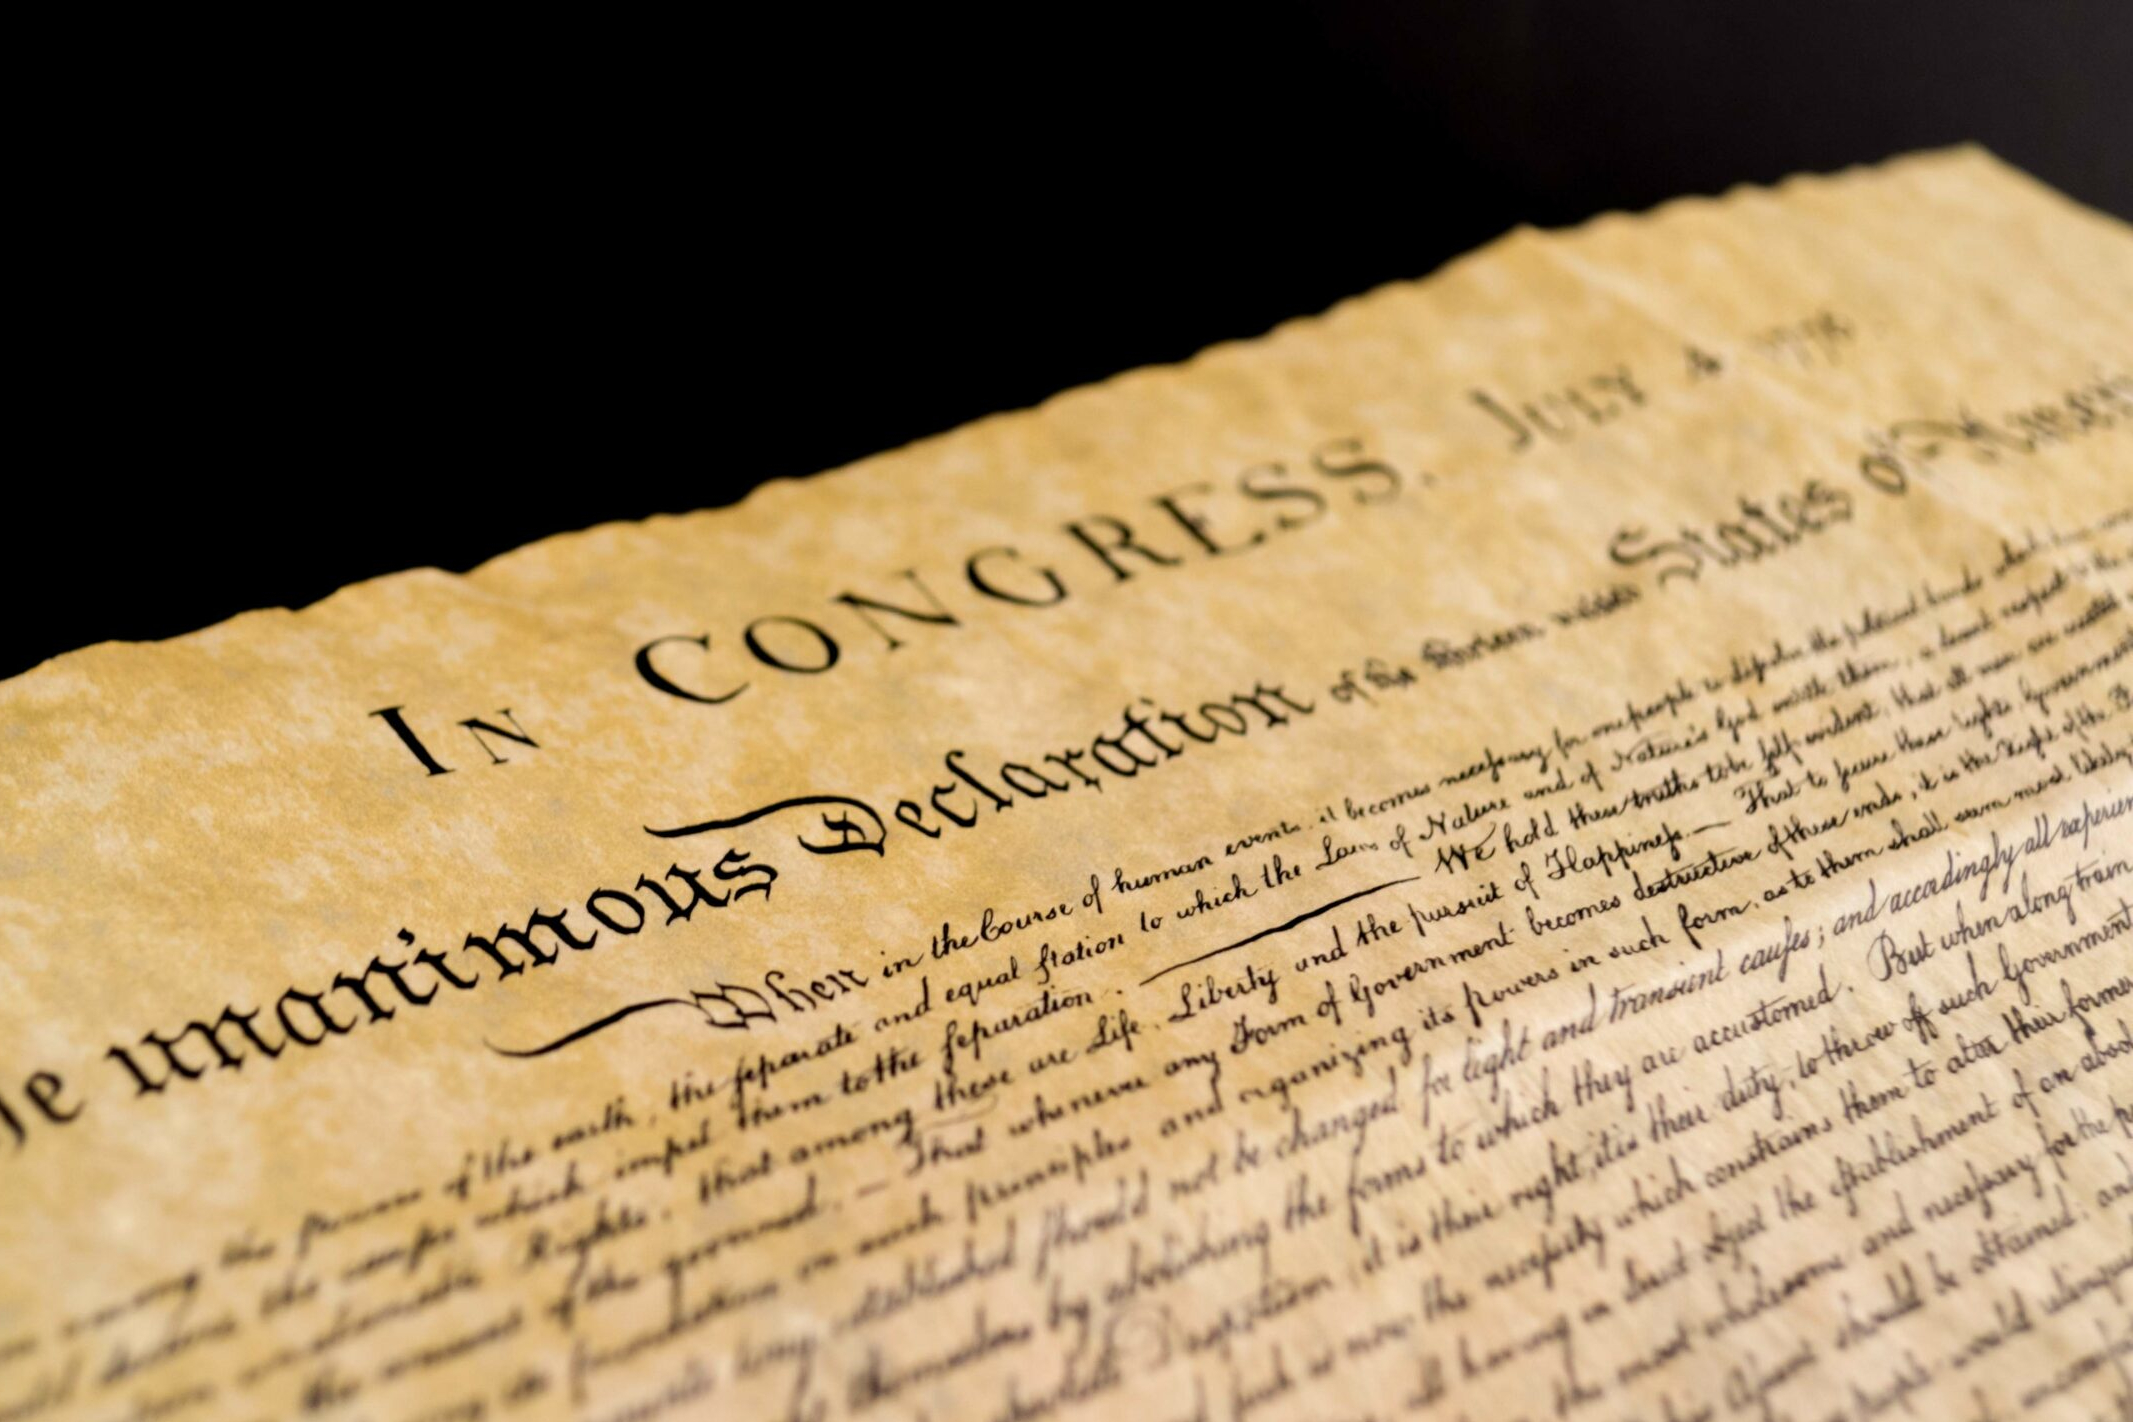 IN CONGRESS. JULY 4, 1776.
unanimous Declaration of the thirteen united States of
When in the Course of human events, it becomes necessary for one people to dissolve the political bands which
the Powers of the earth, the separate and equal station to which the Laws of Nature and of Nature's God entitle them, a decent respect to the
the causes which impel them to the separation. We hold these truths to be self-evident, that all men are
Rights, that among these are Life, Liberty and the pursuit of Happiness.— That to secure these rights, Governments
the consent of the governed, — That whenever any Form of Government becomes destructive of these ends, it is the Right of the
its foundation on such principles and organizing its powers in such form, as to them shall seem most likely
long established should not be changed for light and transient causes; and accordingly all
themselves by abolishing the forms to which they are accustomed. But when a long train
Despotism, it is their right, it is their duty, to throw off such Government
such is now the necessity which constrains them to alter their former
all having in direct object the establishment of an
the most wholesome and necessary for the
should be obtained; and
would